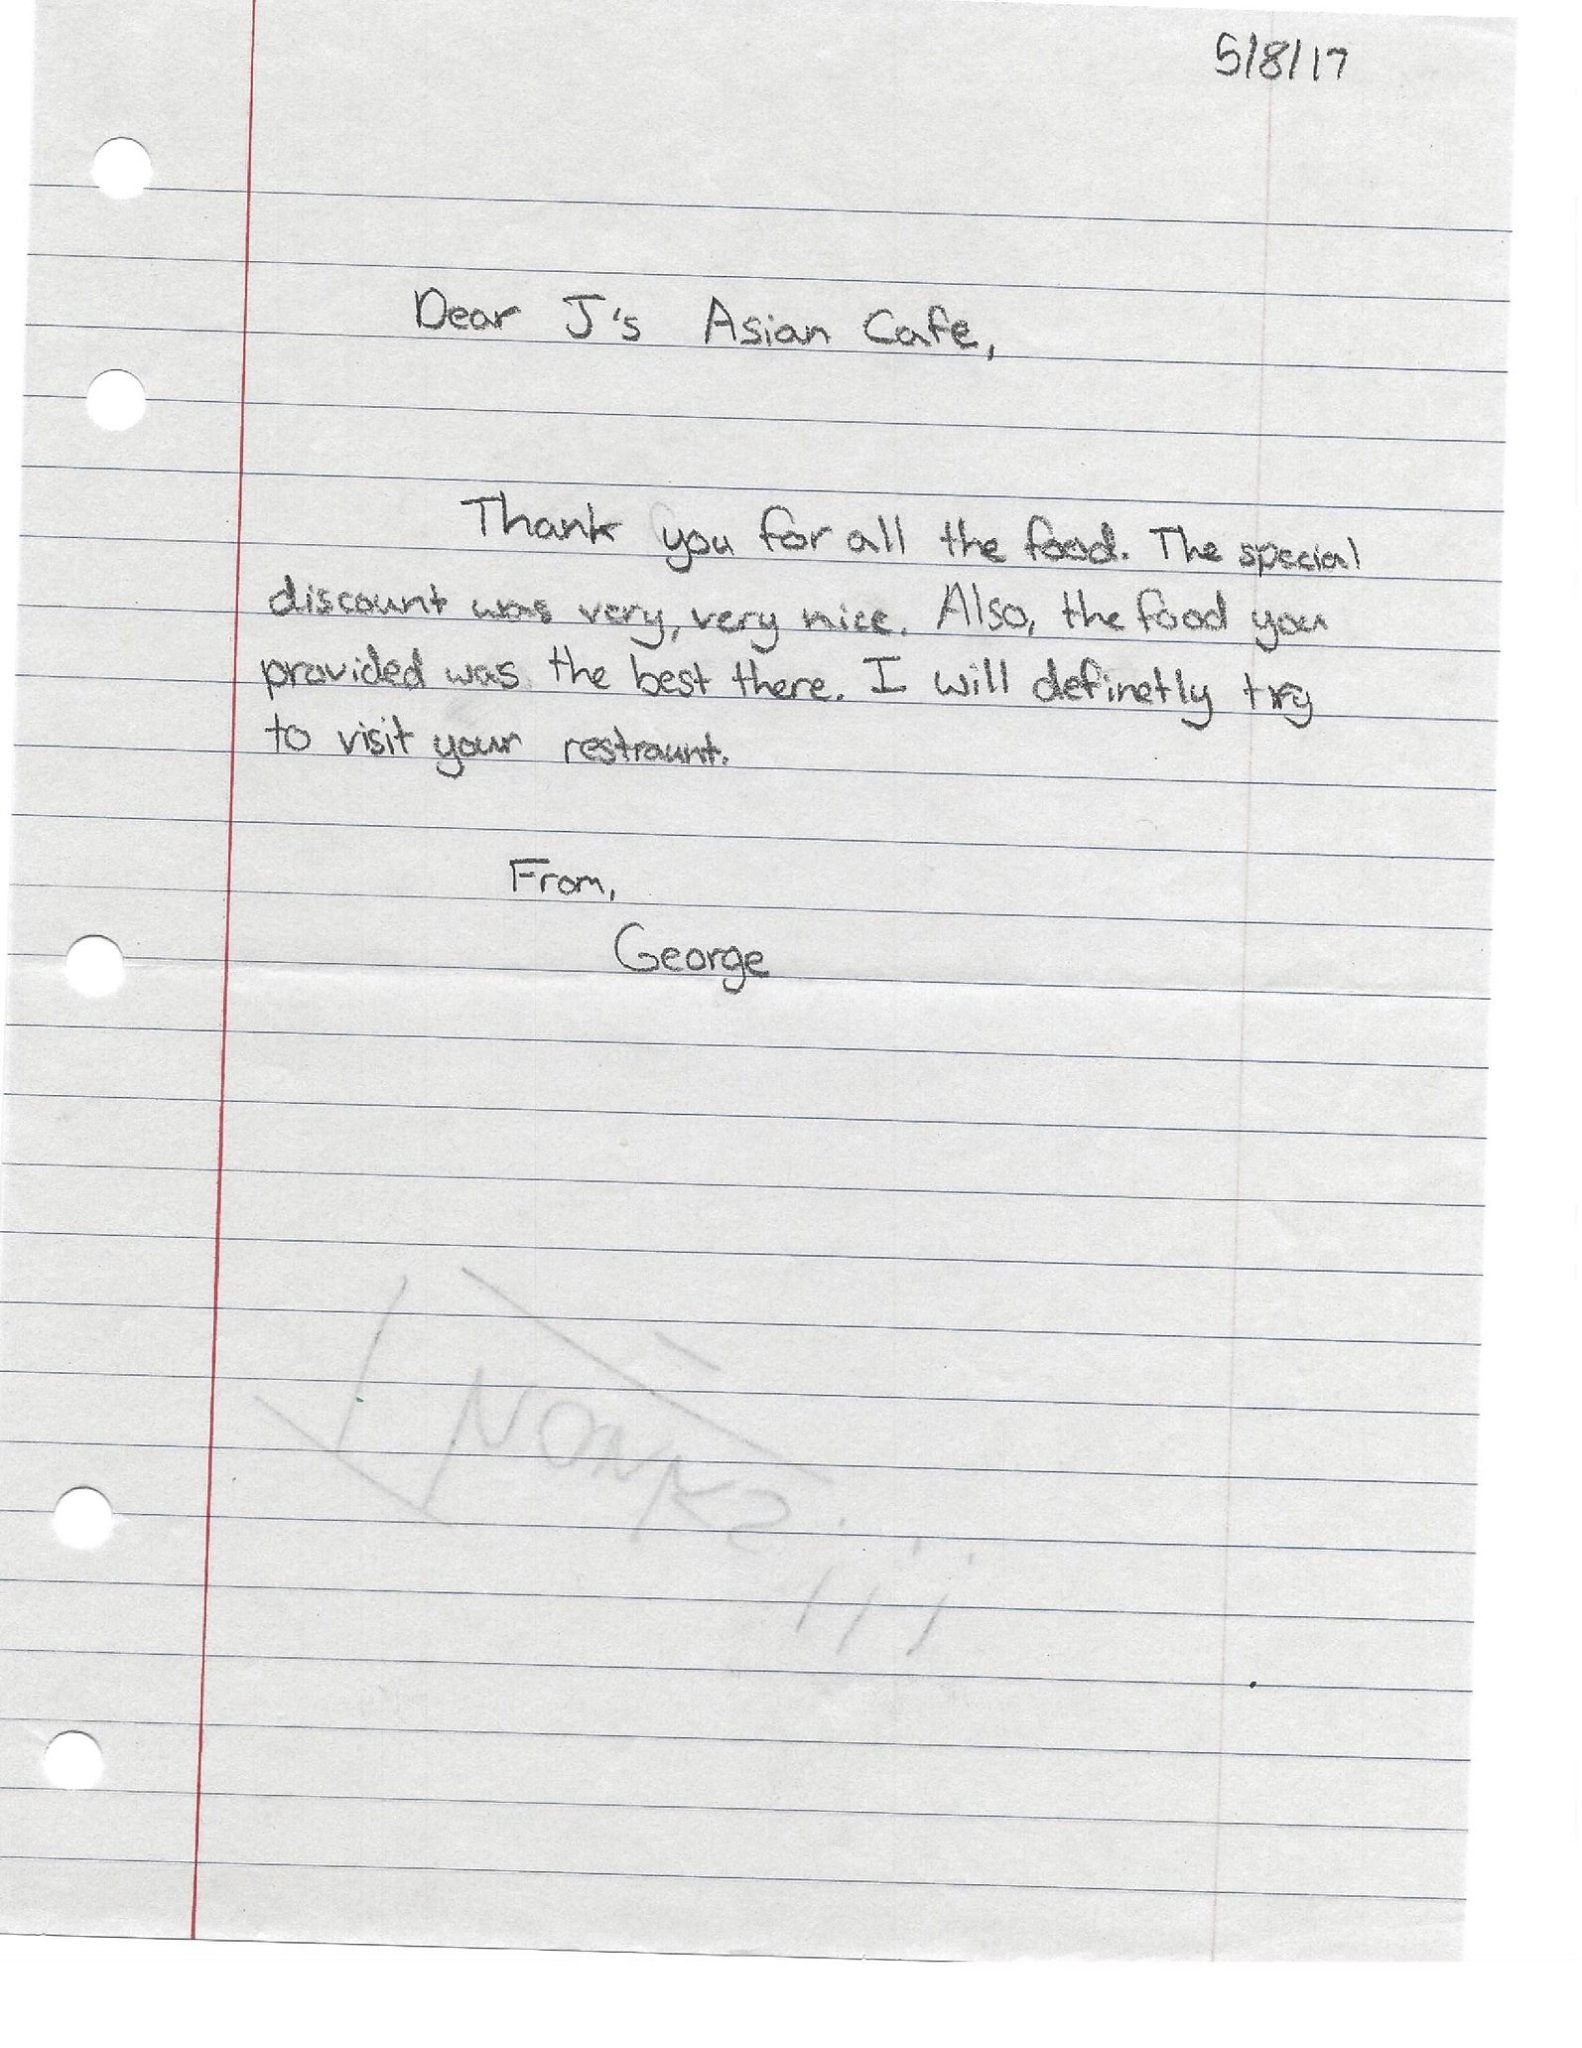 5/8/17
Dear J's Asian Cafe,
Thank you for all the food. The special
discount was very, very nice. Also, the food you
provided was the best there. I will definetly try
to visit your restraunt.
From,
George